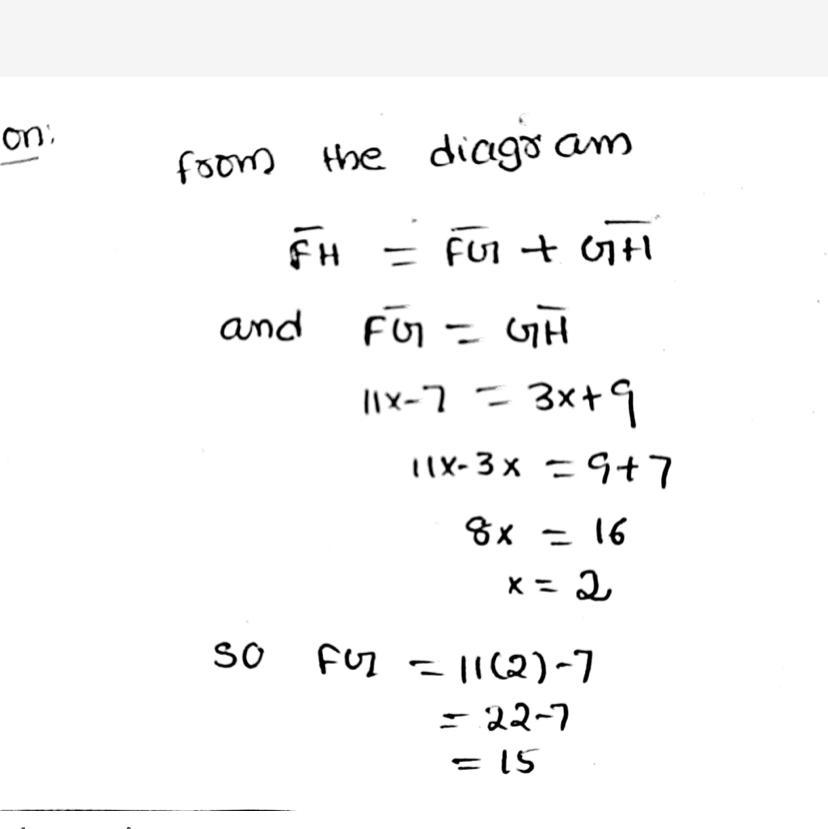 on:
from the diagram
F̅H̅ = F̅G̅ + G̅H̅
and F̅G̅ = G̅H̅
11x-7 = 3x+9
11x-3x = 9+7
8x = 16
x = 2
so FG = 11(2)-7
= 22-7
= 15